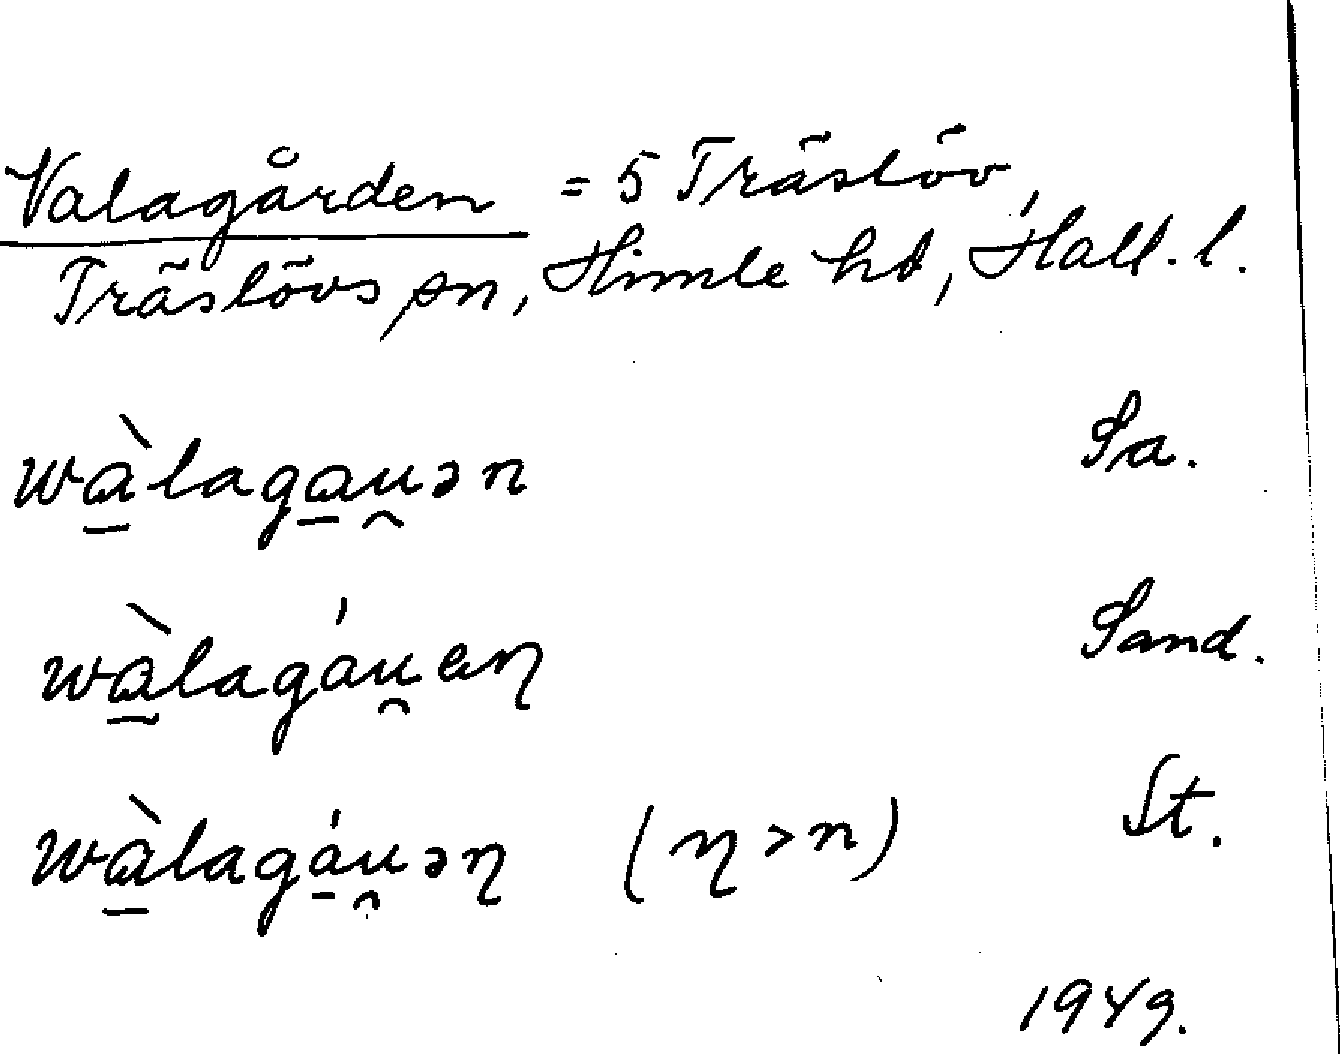 Valagården = 5 Träslöv,
Träslövs sn, Himle hd, Hall. l.
wɑ̱̀lagɑ̱u̯ən Sa.
wɑ̱̀lagáu̯eɳ Sand.
wɑ̱̀lagá̱u̯əɳ (ɳ > n) St.
1949.